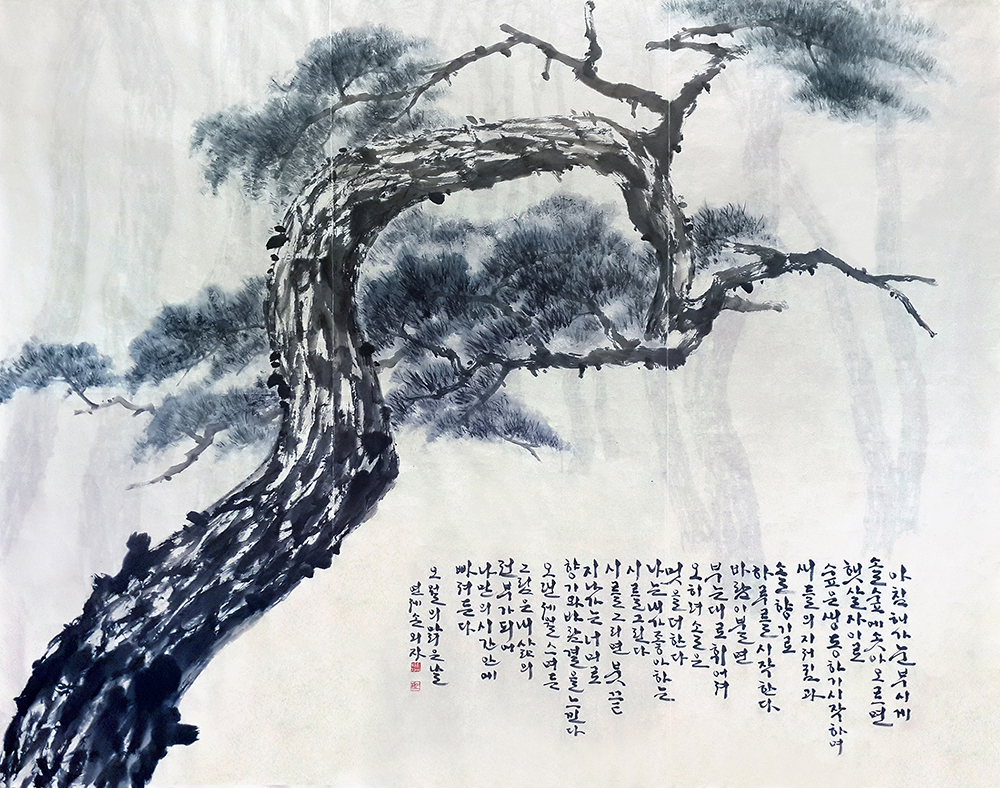 아침해가눈부시게
솔숲에솟아오르면
햇살사이로
숲은생동하기시작하며
새들의지저귐과
솔향기로
하루를시작한다
바람이불면
부는대로휘어져
오히려솔은
멋을더한다
나는내가좋아하는
시를그린다
시를그리면붓끝
지나가는너머로
향기와바람결을느낀다
오랜세월스며든
그림은내삶의
전부가되어
나만의시간안에
빠져든다
오월의맑은날